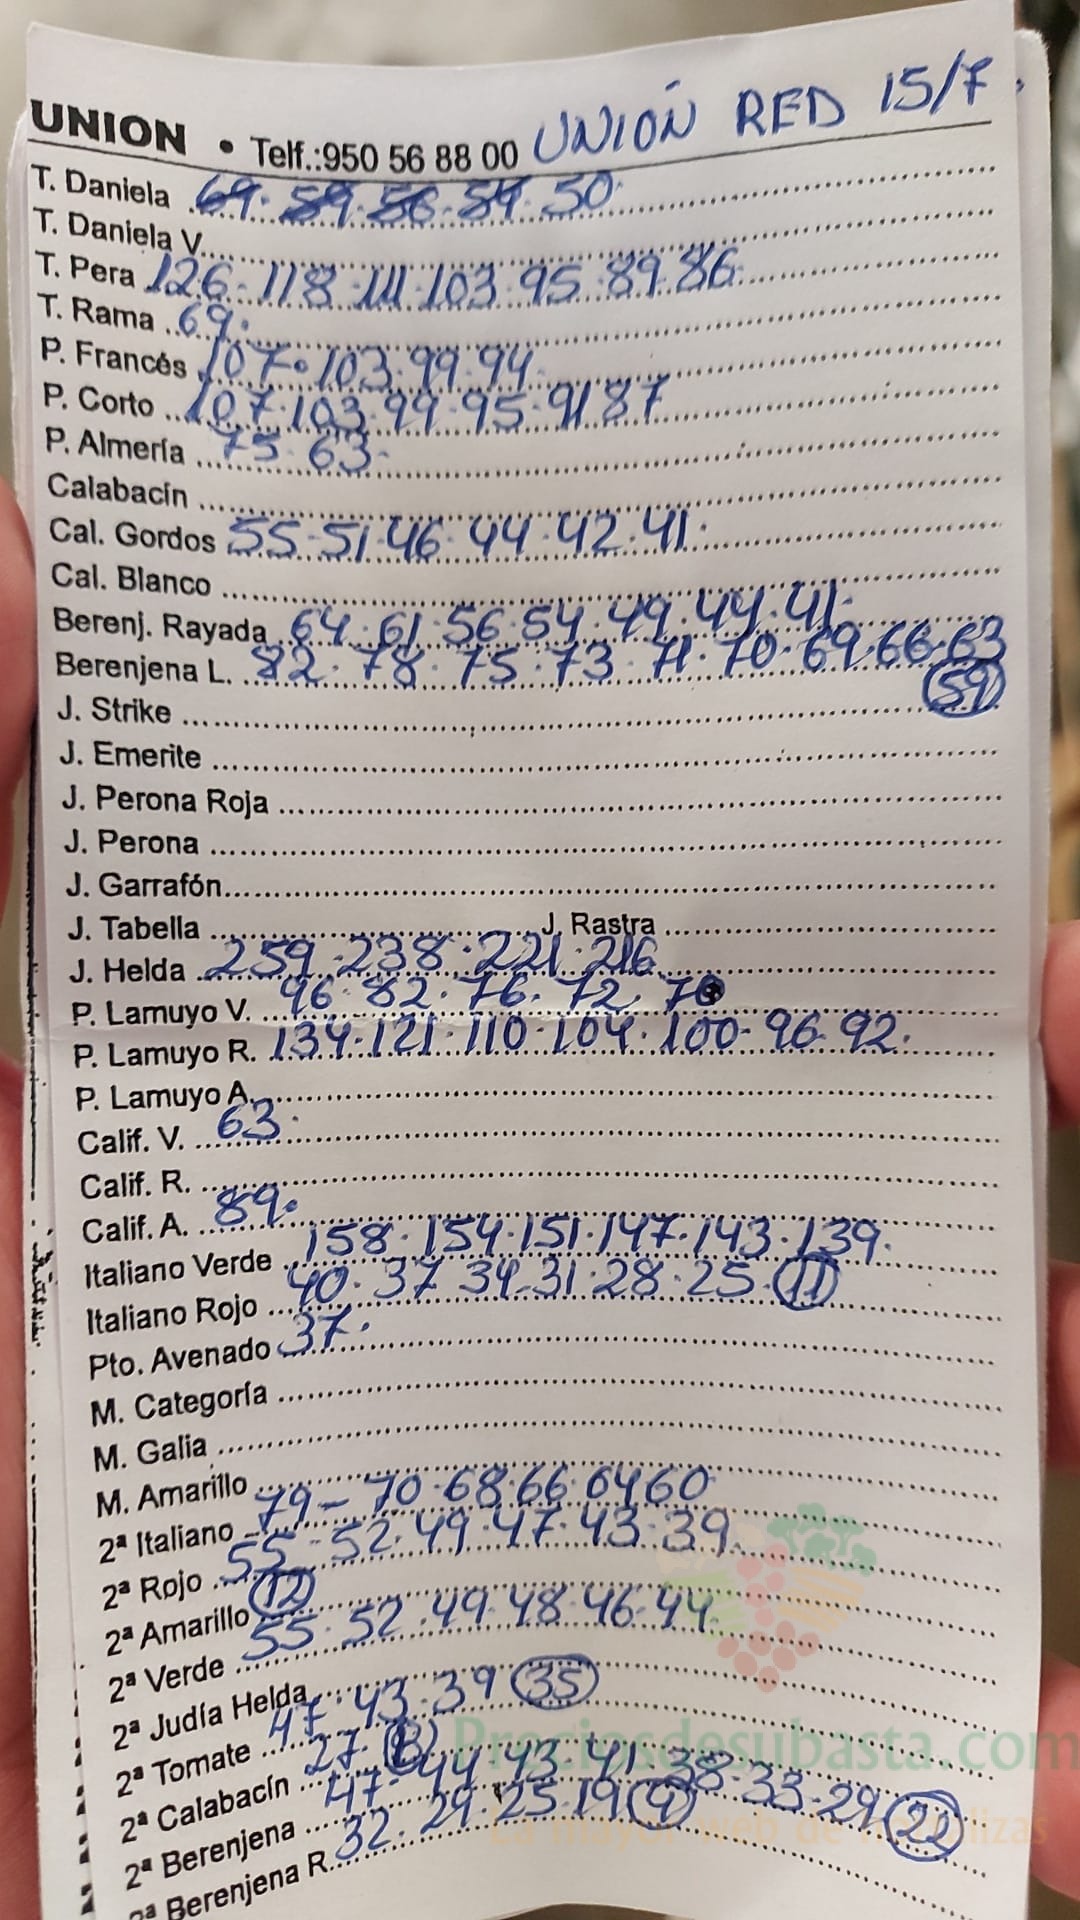 UNION • Telf.:950 56 88 00 UNIÓN RED 15/7
T. Daniela 69. 59. 56. 54. 50.
T. Daniela V.
T. Pera 126. 118. 111. 103. 95. 89. 86.
T. Rama 69.
P. Francés 107. 103. 99. 94.
P. Corto 107. 103. 99. 95. 91 87
P. Almería 75. 63.
Calabacín
Cal. Gordos 55. 51. 46. 44. 42. 41.
Cal. Blanco
Berenj. Rayada 64. 61. 56. 54. 49. 44. 41.
Berenjena L. 82. 78. 75. 73. 71. 70. 69. 66. 63
59
J. Strike
J. Emerite
J. Perona Roja
J. Perona
J. Garrafón
J. Tabella J. Rastra
J. Helda 259. 238. 221. 216
P. Lamuyo V. 96. 82. 76. 72. 70
P. Lamuyo R. 134. 121. 110. 104. 100. 96. 92.
P. Lamuyo A.
Calif. V. 63.
Calif. R.
Calif. A. 89.
Italiano Verde 158. 154. 151. 147. 143. 139.
Italiano Rojo 40. 37 34. 31. 28. 25. 11
Pto. Avenado 37.
M. Categoría
M. Galia
M. Amarillo
2ª Italiano 79- 70. 68. 66. 64 60
2ª Rojo 55. 52. 49. 47. 43. 39.
2ª Amarillo 12
2ª Verde 55. 52. 49. 48. 46. 44.
2ª Judía Helda
2ª Tomate 47. 43. 39 35
2ª Calabacín 27.
2ª Berenjena 47. 44. 43. 41. 38. 33. 29 22
2ª Berenjena R. 32. 29. 25. 19 9
Preciosdesubasta.com
La mayor web de